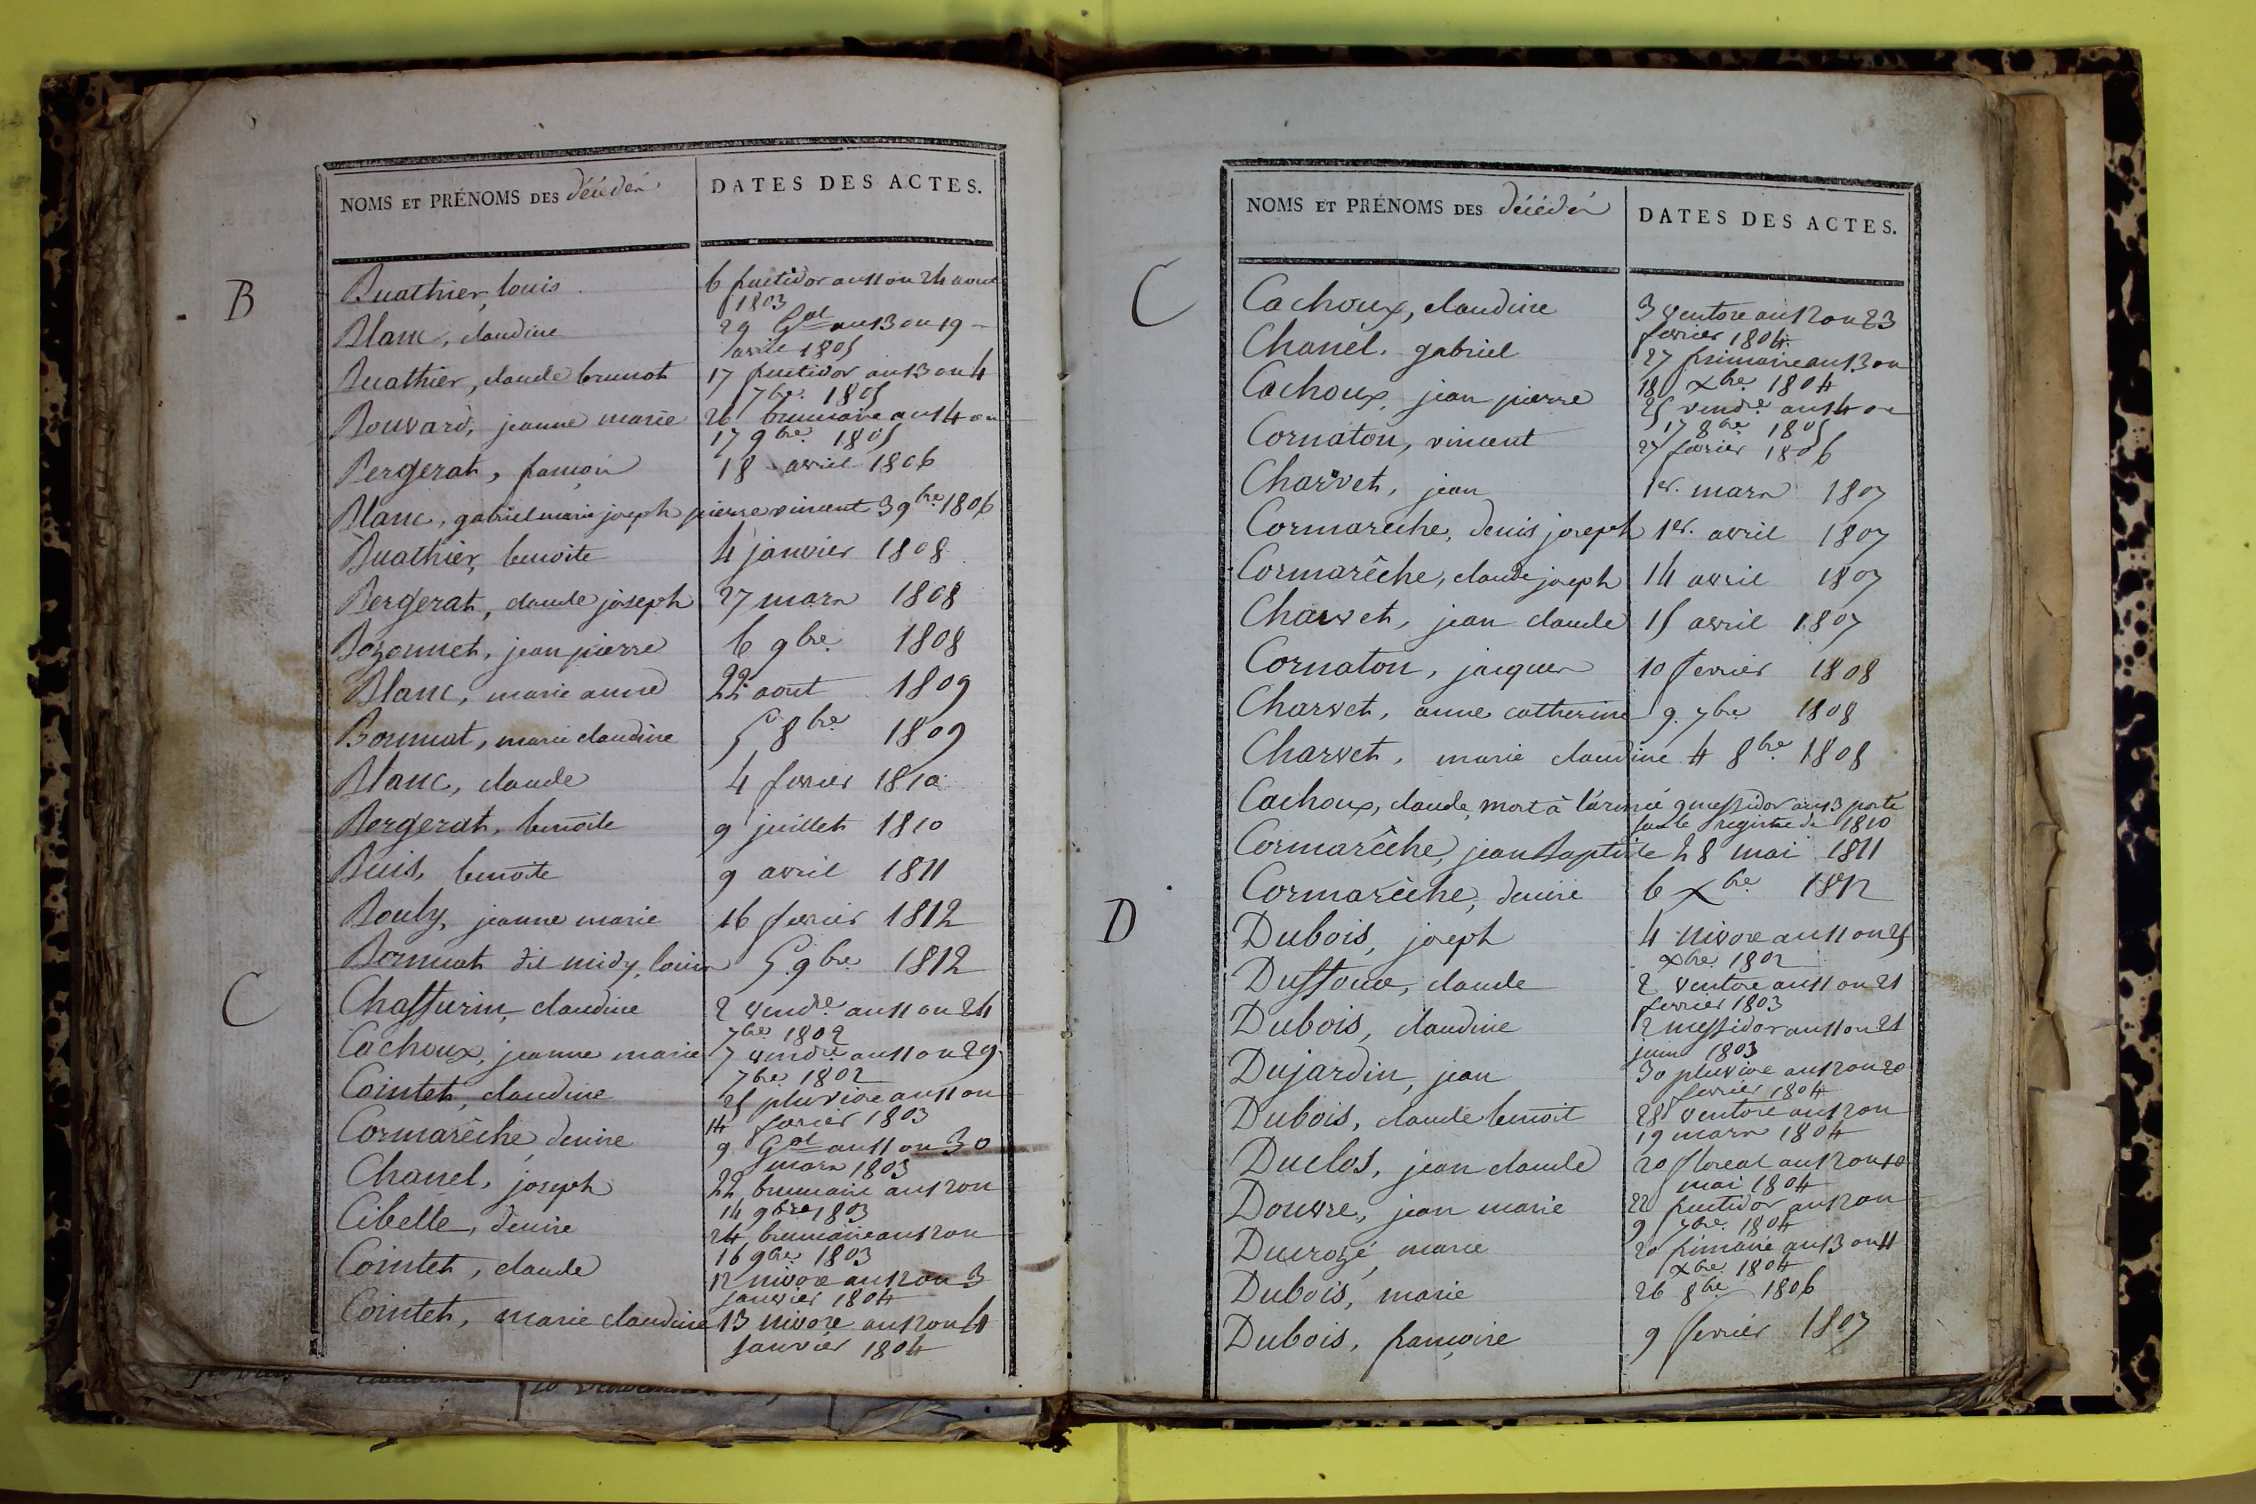 NOMS ET PRÉNOMS DES décédés
DATES DES ACTES.
B
Buathier, louis
6 fructidor an 11 ou 24 aout
1803
Blanc, claudine
29 G.al an 13 ou 19
avril 1805
Buathier, claude brunot
17 fructidor an 13 ou 4
7bre 1805
Bouvard, jeanne marie
26 brumaire an 14 ou
17 9bre 1805
Bergerat, françois
18 avril 1806
Blanc, gabriel marie joseph pierre vincent 3 9bre 1806
Buathier, benoite
4 janvier 1808
Bergerat, claude joseph
27 mars 1808
Bozonnet, jean pierre
6 9bre 1808
Blanc, marie anne
22 aout 1809
Bonnat, marie claudine
5 8bre 1809
Blanc, claude
4 fevrier 1810
Bergerat, benoite
9 juillet 1810
Buis, benoite
9 avril 1811
Bouly, jeanne marie
16 fevrier 1812
Bonnat dit midy, louis
5 9bre 1812
C
Chassurin, claudine
2 vend.re an 11 ou 24
7bre 1802
Cachoux, jeanne marie
7 vend.re an 11 ou 29
7bre 1802
Cointet, claudine
25 pluviose an 11 ou
14 fevrier 1803
Cormarêche, denise
9 G.al an 11 ou 30
mars 1803
Chanel, joseph
22 brumaire an 12 ou
14 9bre 1803
Cibelle, denise
24 brumaire an 12 ou
16 9bre 1803
Cointet, claude
12 nivose an 12 ou 3
janvier 1804
Cointet, marie claudine
13 nivose an 12 ou 4
janvier 1804
NOMS ET PRÉNOMS DES décédés
DATES DES ACTES.
C
Cachoux, claudine
3 ventose an 12 ou 23
fevrier 1804
Chanel, gabriel
27 frimaire an 13 ou
18 xbre 1804
Cachoux, jean pierre
25 vend.re an 14 ou
17 8bre 1805
Cornaton, vincent
27 fevrier 1806
Charvet, jean
1er. mars 1807
Cormarêche, denis joseph
1er. avril 1807
Cormarêche, claude joseph
14 avril 1807
Charvet, jean claude
15 avril 1807
Cornaton, jacques
10 fevrier 1808
Charvet, anne catherine
9 7bre 1808
Charvet, marie claudine
4 8bre 1808
Cachoux, claude, mort à l'armée 9 messidor an 13 porté
sur le registre de 1810
Cormarêche, jean Baptiste 28 mai 1811
Cormarêche, denise
6 xbre 1812
D
Dubois, joseph
4 nivose an 11 ou 25
xbre 1802
Dussoue, claude
2 ventose an 11 ou 21
fevrier 1803
Dubois, claudine
2 messidor an 11 ou 21
juin 1803
Dujardin, jean
30 pluviose an 12 ou 20
fevrier 1804
Dubois, claude benoit
28 ventose an 12 ou
19 mars 1804
Duclos, jean claude
20 floreal an 12 ou 10
mai 1804
Douvre, jean marie
22 fructidor an 12 ou
9 7bre 1804
Ducrozé, marie
20 frimaire an 13 ou 11
xbre 1804
Dubois, marie
26 8bre 1806
Dubois, françoise
9 fevrier 1807